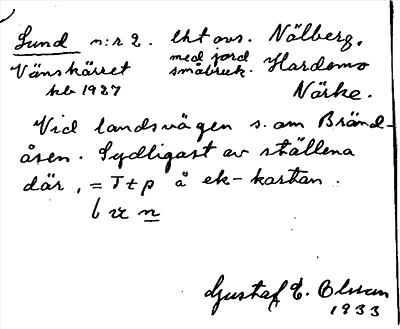 Lund n:r 2. lht avs. Nälberg,
Vänskärret med jord småbruk. Hardemo
hb 1927 Närke.
Vid landsvägen s. om Bränd-
åsen. Sydligast av ställena
där, = T t p å ek-kartan.
b vr n
Gustaf E. Olsson
1933